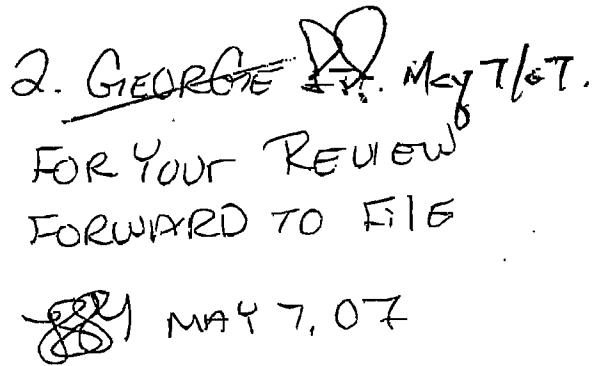 2. GEORGE May 7/07.
FOR YOUR REVIEW
FORWARD TO FILE
MAY 7, 07